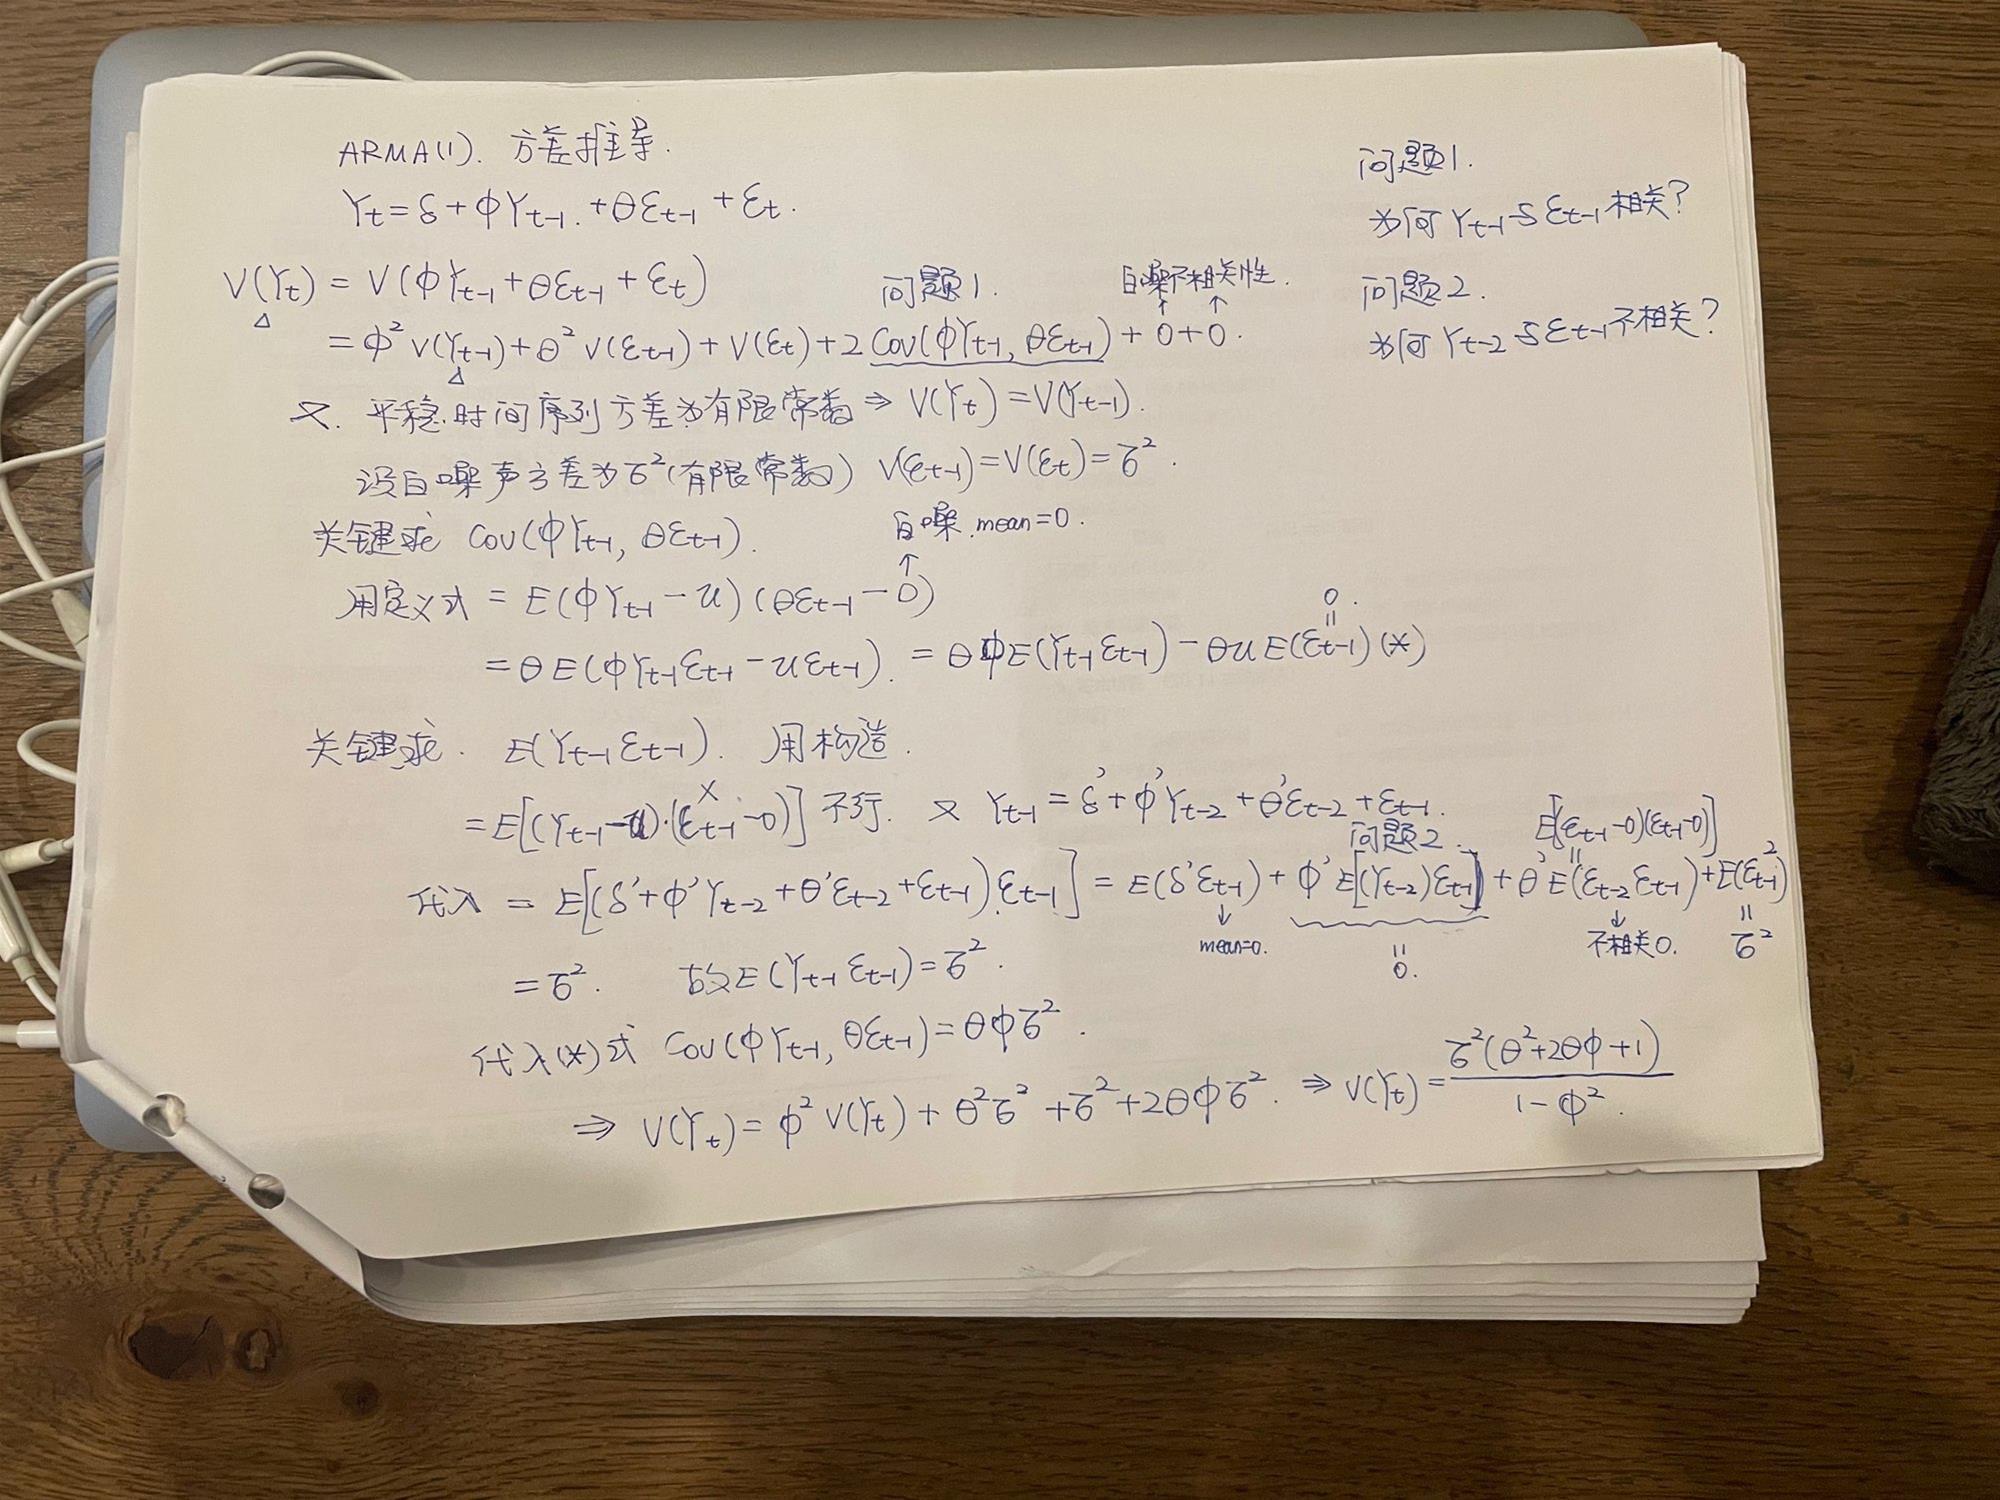 ARMA(1). 方差推导.
Yt = δ + ϕYt-1. + θεt-1 + εt.
问题1.
为何 Yt-1 与 εt-1 相关?
问题2.
为何 Yt-2 与 εt-1 不相关?
V(Yt) = V(ϕYt-1 + θεt-1 + εt)
问题1. 白噪不相关性.
= ϕ² V(Yt-1) + θ² V(εt-1) + V(εt) + 2 Cov(ϕYt-1, θεt-1) + 0 + 0.
又. 平稳时间序列方差为有限常数 ⇒ V(Yt) = V(Yt-1).
设白噪声方差为σ²(有限常数) V(εt-1) = V(εt) = σ².
关键求 Cov(ϕYt-1, θεt-1). 白噪.mean=0.
用定义式 = E(ϕYt-1 - u)(θεt-1 - 0)
= θE(ϕYt-1εt-1 - uεt-1). = θϕE(Yt-1εt-1) - θuE(εt-1) (*)
0.
=
关键求. E(Yt-1 εt-1). 用构造.
= E[(Yt-1 - u)·(εt-1 - 0)] × 不行. 又 Yt-1 = δ' + ϕ'Yt-2 + θ'εt-2 + εt-1.
问题2. E[(εt-1-0)(εt-1-0)]
代入 = E[(δ' + ϕ'Yt-2 + θ'εt-2 + εt-1).εt-1] = E(δ'εt-1) + ϕ'E[(Yt-2)εt-1] + θ'E(εt-2 εt-1) + E(εt-1²)
↓ mean=0. = 0. ↓ 不相关0. = σ²
= σ². 故E(Yt-1 εt-1) = σ².
代入(*)式 Cov(ϕYt-1, θεt-1) = θϕσ².
⇒ V(Yt) = ϕ² V(Yt) + θ²σ² + σ² + 2θϕσ². ⇒ V(Yt) = σ²(θ²+2θϕ+1) / 1-ϕ².